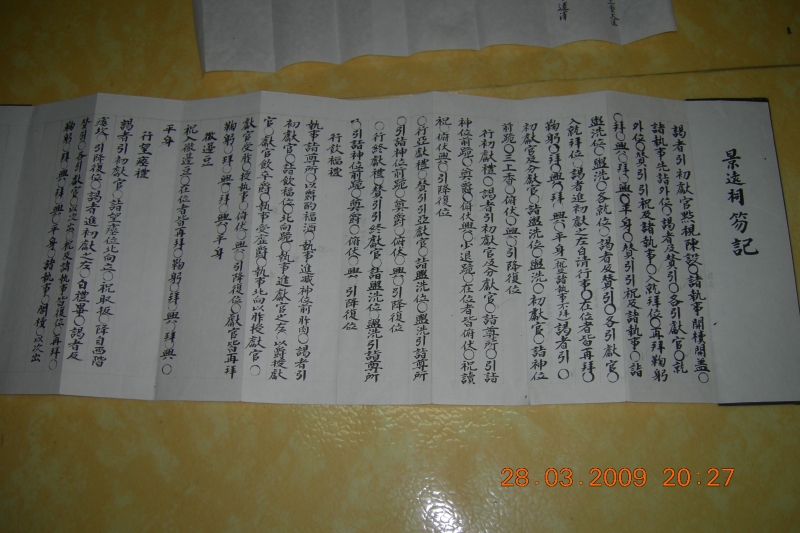 景遠祠 笏記
謁者引初獻官點視陳設○諸執事開櫝開盖○
諸執事先詣外位○謁者及賛引○各引獻官○就
外位○賛引引祝及諸執事○入就拜位○再拜鞠躬
○拜○興○拜○興○平身○賛引引祝及諸執事○詣
盥洗位○盥洗○各就位○謁者及賛引○各引獻官○
入就拜位○謁者進初獻之左白請行事○在位者皆再拜○
鞠躬○拜○興○拜○興○平身 祝及諸執事不拜 謁者引○
初獻官及分獻官○詣盥洗位○盥洗○初獻官○詣神位
前跪○三上香○俯伏○興○引降復位
行初獻禮○謁者引初獻官及分獻官○詣尊所○引詣
神位前跪○奠爵○俯伏興○小退跪○在位者皆俯伏○祝讀
祝○俯伏興○引降復位
○行亞獻禮○賛引引亞獻官○詣盥洗位○盥洗引詣尊所
○引詣神位前跪○奠爵○俯伏○興○引降復位
○行終獻禮○賛引引終獻官○詣盥洗位○盥洗引詣尊所
○引詣神位前跪○奠爵○俯伏○興○引降復位
行飲福禮
執事詣尊所○以爵酌福酒○執事進减神位前胙肉○謁者引
初獻官○詣飲福位○北向跪○執事進獻官之左○以爵授獻
官○獻官飲卒爵○執事受虛爵○執事北向以胙授獻官○
獻官受胙○授執事○俯伏○興○引降復位○獻官皆再拜
鞠躬○拜○興○拜○興○平身
徹籩豆
祝入徹籩豆○在位者皆再拜○鞠躬○拜○興○拜○興○
平身
行望瘞禮
謁者引初獻官○詣望瘞位北向立○祝取板○降自西階
瘞坎○引降復位○謁者進初獻之左○白禮畢○謁者及
賛引○各引獻官○以次出○祝及諸執事皆復位○再拜○
鞠躬○拜○興○拜○興○平身○諸執事○闔櫝○以次出
28.03.2009 20:27